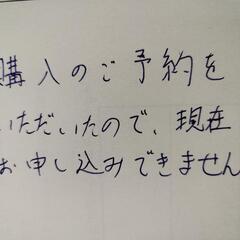 購入のご予約を
いただいたので、現在
お申し込みできません